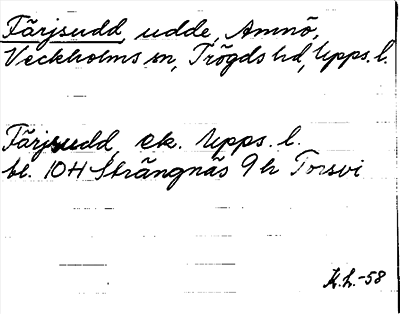 Färjsudd, udde, Amnö,
Veckholms sn, Trögds hd, Upps. l.
Färjsudd, ek. Upps. l.
bl. 10H Strängnäs 9 h Torsvi
K.L.-58